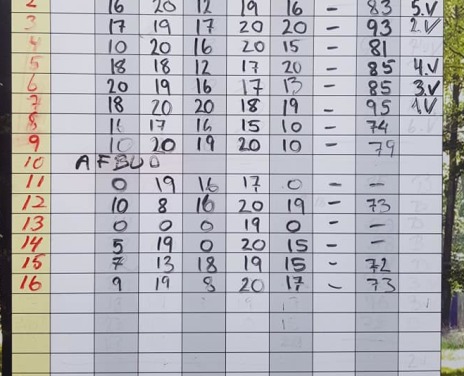 2 16 20 12 19 16 - 83 5.V
3 17 19 17 20 20 - 93 2.V
4 10 20 16 20 15 - 81
5 18 18 12 17 20 - 85 4.V
6 20 19 16 17 13 - 85 3.V
7 18 20 20 18 19 - 95 1.V
8 16 17 16 15 10 - 74
9 10 20 19 20 10 - 79
10 AFBUD
11 0 19 16 17 0 - -
12 10 8 16 20 19 - 73
13 0 0 0 19 0 - -
14 5 19 0 20 15 - -
15 7 13 18 19 15 - 72
16 9 19 8 20 17 - 73